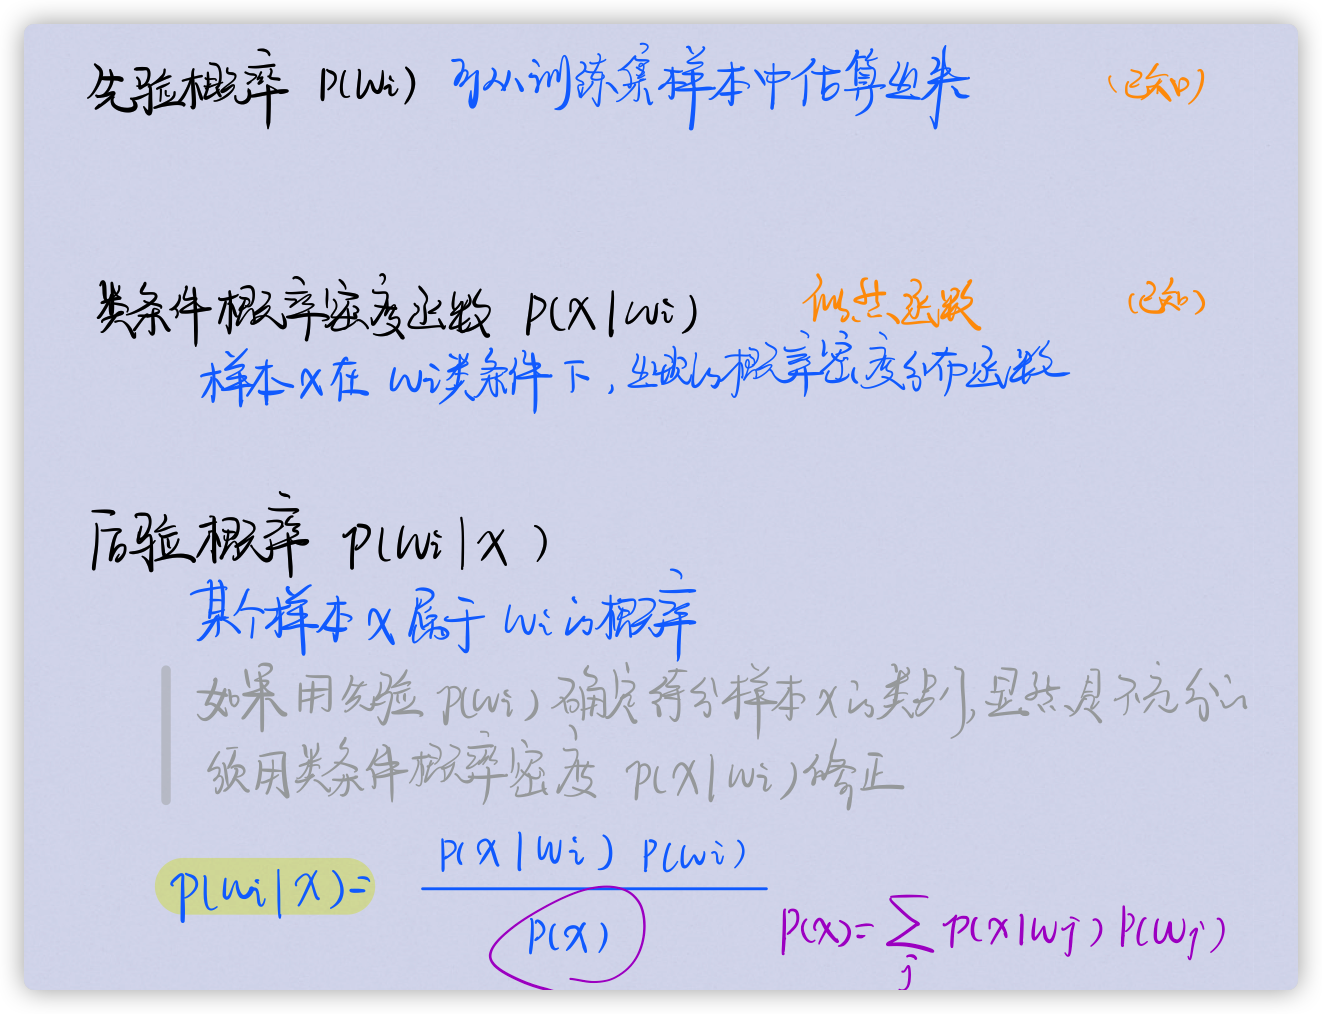 先验概率 P(wi) 可从训练集样本中估算出来 (已知)
类条件概率密度函数 P(X|wi) 似然函数 (已知)
样本X在wi类条件下,出现的概率密度分布函数
后验概率 P(wi|X)
某个样本X属于wi的概率
如果用先验P(wi)确定待分样本X的类别,显然是不充分的
须用类条件概率密度 P(X|wi)修正
P(wi|X)= P(X|wi) P(wi) / P(X)
P(X)= ∑j P(X|wj) P(wj)